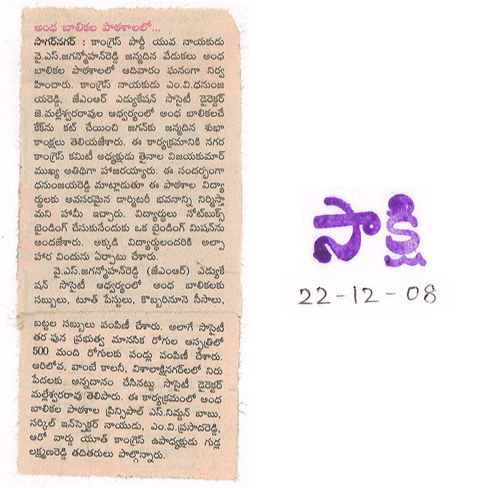 అంధ బాలికల పాఠశాలలో...
సాగర్‌నగర్ : కాంగ్రెస్ పార్టీ యువ నాయకుడు
వై.ఎస్.జగన్మోహన్‌రెడ్డి జన్మదిన వేడుకలు అంధ
బాలికల పాఠశాలలో ఆదివారం ఘనంగా నిర్వ
హించారు. కాంగ్రెస్ నాయకుడు ఎం.వి.ధనుంజ
యరెడ్డి, జేఎంఆర్ ఎడ్యుకేషన్ సొసైటీ డైరెక్టర్
జె.మల్లేశ్వరరావుల ఆధ్వర్యంలో అంధ బాలికలచే
కేక్‌ను కట్ చేయించి జగన్‌కు జన్మదిన శుభా
కాంక్షలు తెలియజేశారు. ఈ కార్యక్రమానికి నగర
కాంగ్రెస్ కమిటీ అధ్యక్షుడు తైనాల విజయకుమార్
ముఖ్య అతిథిగా హాజరయ్యారు. ఈ సందర్భంగా
ధనుంజయరెడ్డి మాట్లాడుతూ ఈ పాఠశాల విద్యా
ర్థులకు అవసరమైన డార్మిటరీ భవనాన్ని నిర్మిస్తా
మని హామీ ఇచ్చారు. విద్యార్థులు నోట్‌బుక్స్
బైండింగ్ చేసుకునేందుకు ఒక బైండింగ్ మిషన్‌ను
అందజేశారు. అక్కడి విద్యార్థులందరికి అల్పా
హార విందును ఏర్పాటు చేశారు.
వై.ఎస్.జగన్మోహన్‌రెడ్డి (జేఎంఆర్) ఎడ్యుకే
షన్ సొసైటీ ఆధ్వర్యంలో అంధ బాలికలకు
సబ్బులు, టూత్ పేస్టులు, కొబ్బరినూనె సీసాలు,
బట్టల సబ్బులు పంపిణీ చేశారు. అలాగే సొసైటీ
తరపున ప్రభుత్వ మానసిక రోగుల ఆస్పత్రిలో
500 మంది రోగులకు పండ్లు పంపిణీ చేశారు.
ఆరిలోవ, వాంబే కాలనీ, విశాలాక్షినగర్‌లలో నిరు
పేదలకు అన్నదానం చేసినట్టు సొసైటీ డైరెక్టర్
మల్లేశ్వరరావు తెలిపారు. ఈ కార్యక్రమంలో అంధ
బాలికల పాఠశాల ప్రిన్సిపాల్ ఎస్.నిమ్టన్ బాబు,
సర్కిల్ ఇన్‌స్పెక్టర్ నాయుడు, ఎం.వి.ప్రసాదరెడ్డి,
ఆరో వార్డు యూత్ కాంగ్రెస్ ఉపాధ్యక్షుడు గుడ్ల
లక్ష్మణరెడ్డి తదితరులు పాల్గొన్నారు.
సాక్షి
22-12-08